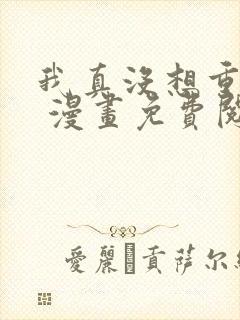 我真没想重
漫畫免費閱
愛麗 貢萨尔
HANDSOME